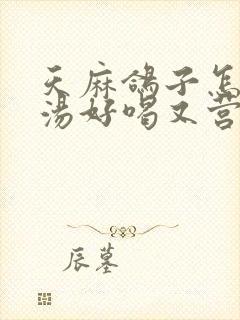 天麻鸽子怎
汤好喝又营
辰墓